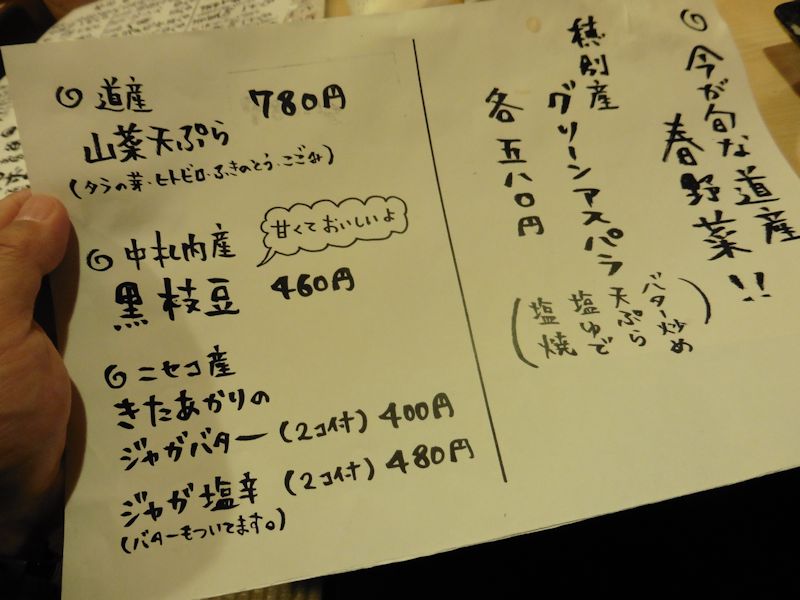 今が旬な道産
春野菜!!
穂別産
グリーンアスパラ
各五八〇円
(バター炒め
天ぷら
塩ゆで
塩焼)
道産
780円
山菜天ぷら
(タラの芽・ヒトビロ・ふきのとう・こごみ)
中札内産
甘くておいしいよ
黒枝豆 460円
ニセコ産
きたあかりの
ジャガバター(2コ付) 400円
ジャガ塩辛(2コ付) 480円
(バターもついてます。)